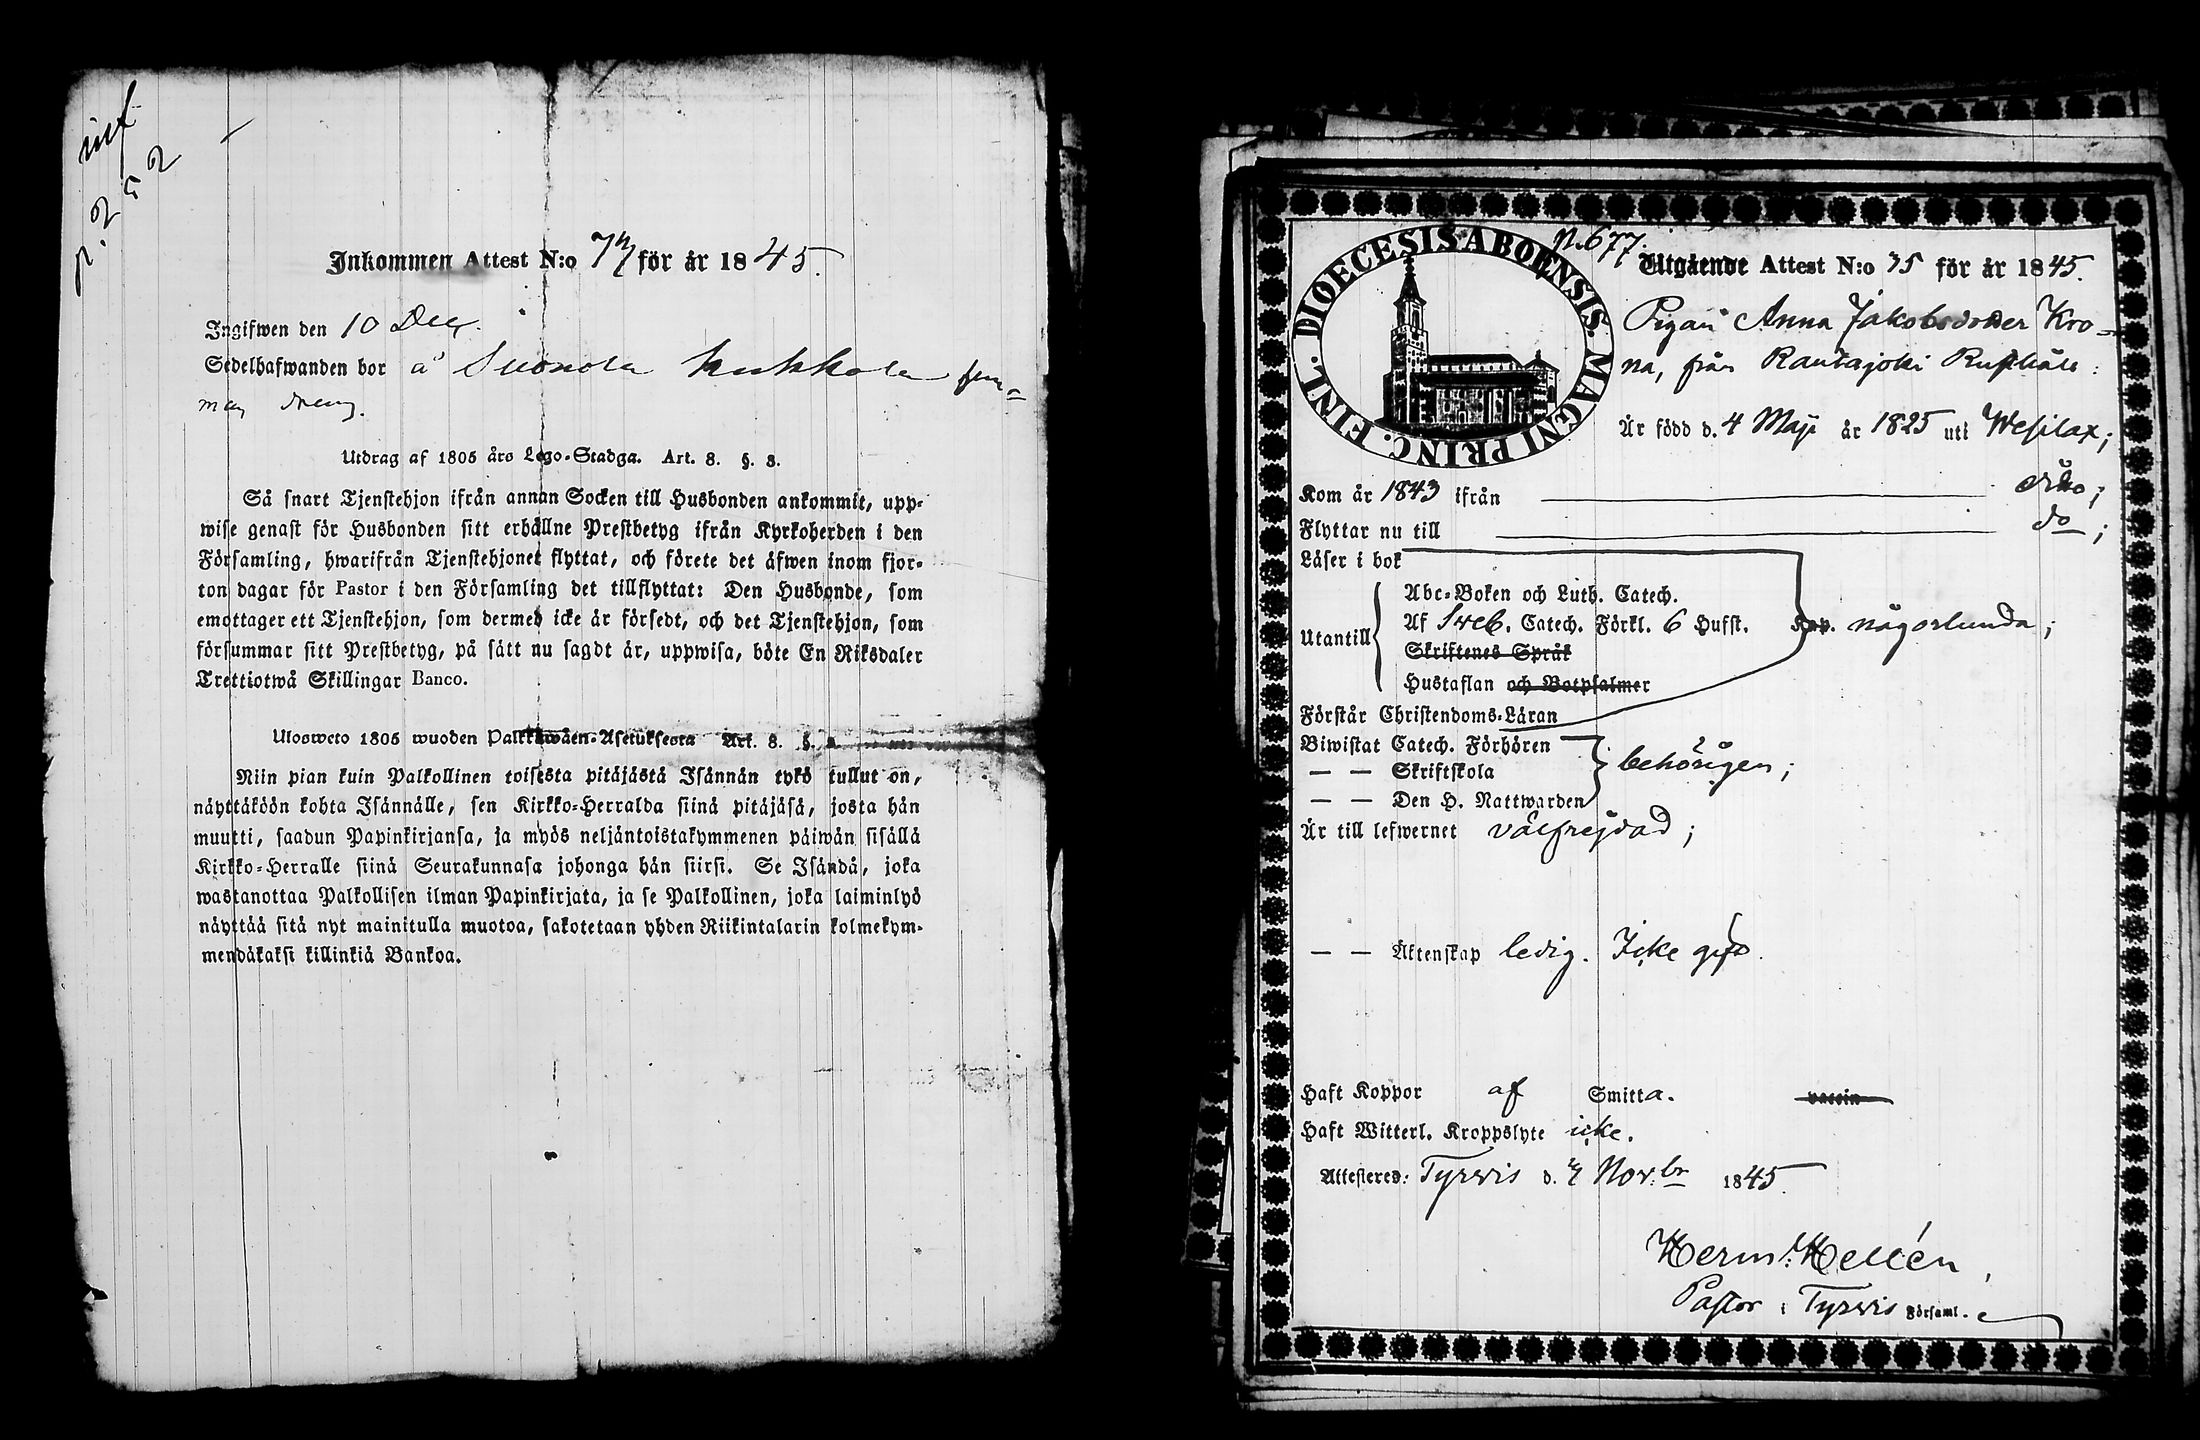 inf
p. 252
Inkommen Attest N:o 74 för år 1845.
Ingifwen den 10 Dec.
Sedelhafwanden bor å Suonola Kukkola
Utdrag af 1805 års Lego-Stadga. Art. 8. §. 3.
Så snart Tjenstehjon ifrån annan Socken till Husbonden ankommit, upp-
wise genast för Husbonden sitt erhållne Prestbetyg ifrån Kyrkoherden i den
Församling, hwarifrån Tjenstehjonet flyttat, och förete det äfwen inom fjor-
ton dagar för Pastor i den Församling det tillflyttat: Den Husbonde, som
emottager ett Tjenstehjon, som dermed icke är försedt, och det Tjenstehjon, som
försummar sitt Prestbetyg, på sätt nu sagdt är, uppwisa, böte En Riksdaler
Trettiotwå Skillingar Banco.
Ulosweto 1805 wuoden Palkkawäen-Asetuksesta Art. 8. §.
Niin pian kuin Palkollinen toisesta pitäjästä Isännän tykö tullut on,
näyttäköön kohta Isännälle, sen Kirkko-Herralda siinä pitäjäsä, josta hän
muutti, saadun Papinkirjansa, ja myös neljäntoistakymmenen päiwän sisällä
Kirkko-Herralle siinä Seurakunnasa johonga hän siirsi. Se Isändä, joka
wastanottaa Palkollisen ilman Papinkirjata, ja se Palkollinen, joka laiminlyö
näyttää sitä nyt mainitulla muotoa, sakotetaan yhden Riikintalarin kolmekym-
mendäkaksi killinkiä Bankoa.
DIOECESIS ABOENSIS. MAGNI PRINC. FINL.
p. 677.
Utgående Attest N:o 35 för år 1845.
Pigan Anna Jakobsdotter Kro-
na, från Rautajoki Rusthåll:
Är född d. 4 Maji år 1825 uti Wesilax;
Kom år 1843 ifrån dito;
Flyttar nu till do;
Läser i bok
Utantill
Abc-Boken och Luth. Catech.
Af Sveb. Catech. Förkl. 6 Hufst. Kap. någorlunda;
Skriftenes Språk
Hustaflan och Botpsalmer
Förstår Christendoms-Läran
Biwistat Catech. Förhören
— — Skriftskola behörigen;
— — Den H. Nattwarden
Är till lefwernet välfrejdad;
— — Äktenskap ledig. Icke gift.
Haft Koppor af Smitta. vaccin
Haft Witterl. Kroppslyte icke.
Attesteres: Tyrvis d. 4 Nov:br 1845.
Herm: Hellén,
Pastor i Tyrvis Församl.